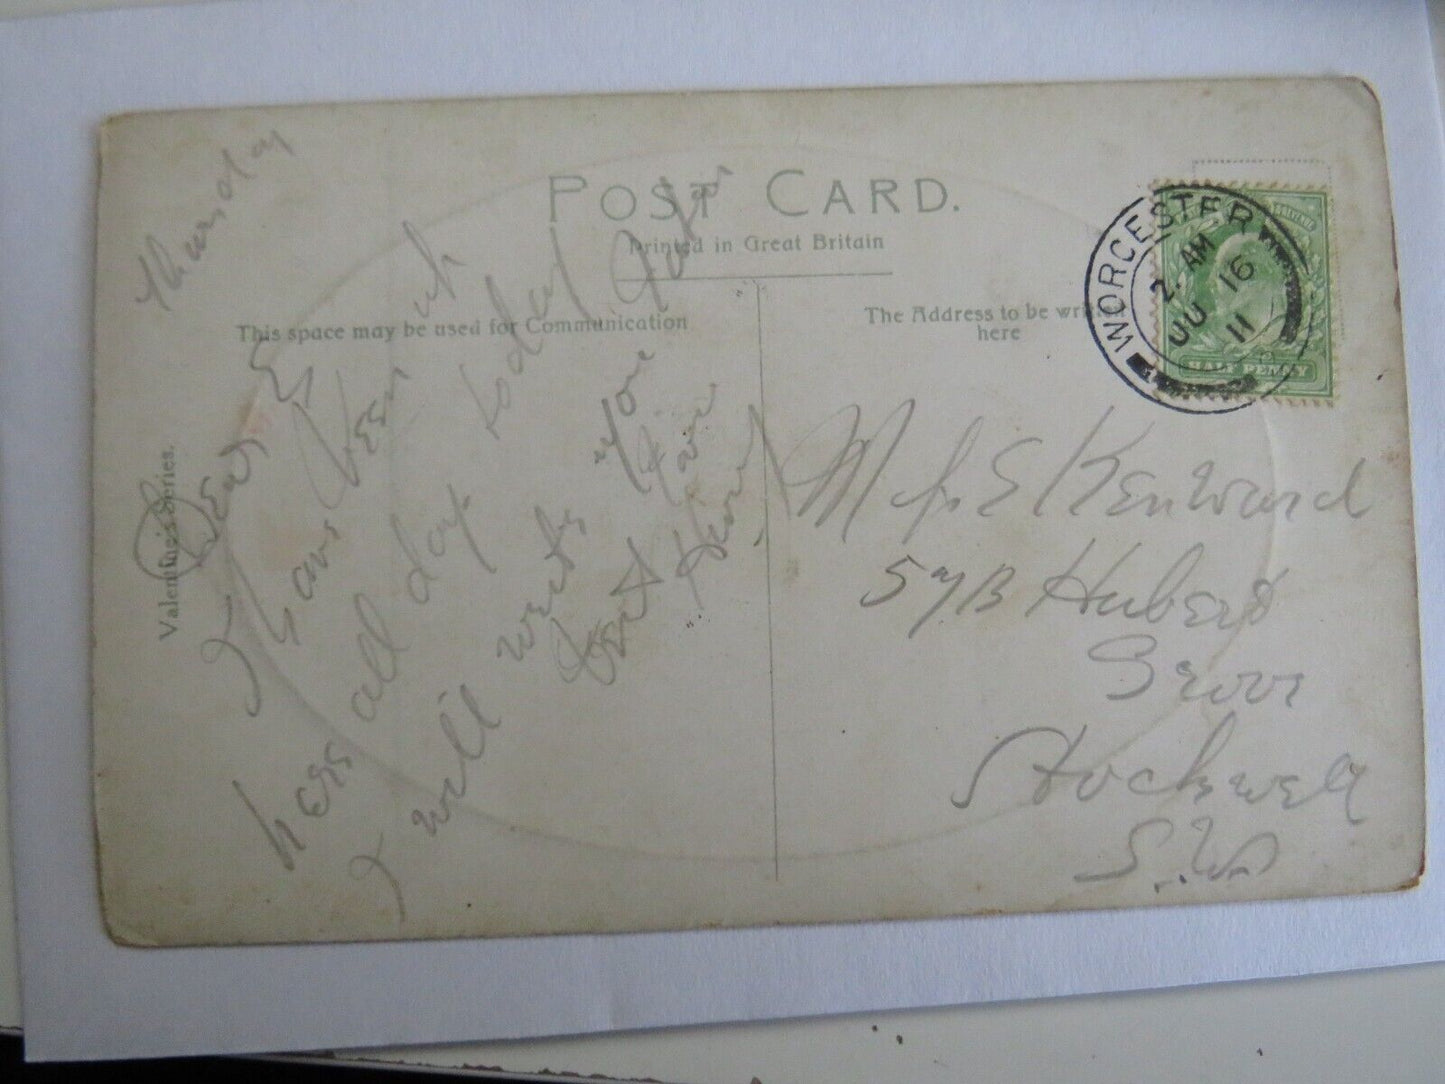 POST CARD.
Printed in Great Britain
This space may be used for Communication
The Address to be written
here
Valentine's Series.
WORCESTER
2. AM
JU 16
11
HALF PENNY
Thursday
Dear E
I have been up
here all day today
I will write you
Best Love
Mrs E Kenward
57B Hubert
Grove
Stockwell
S.W.